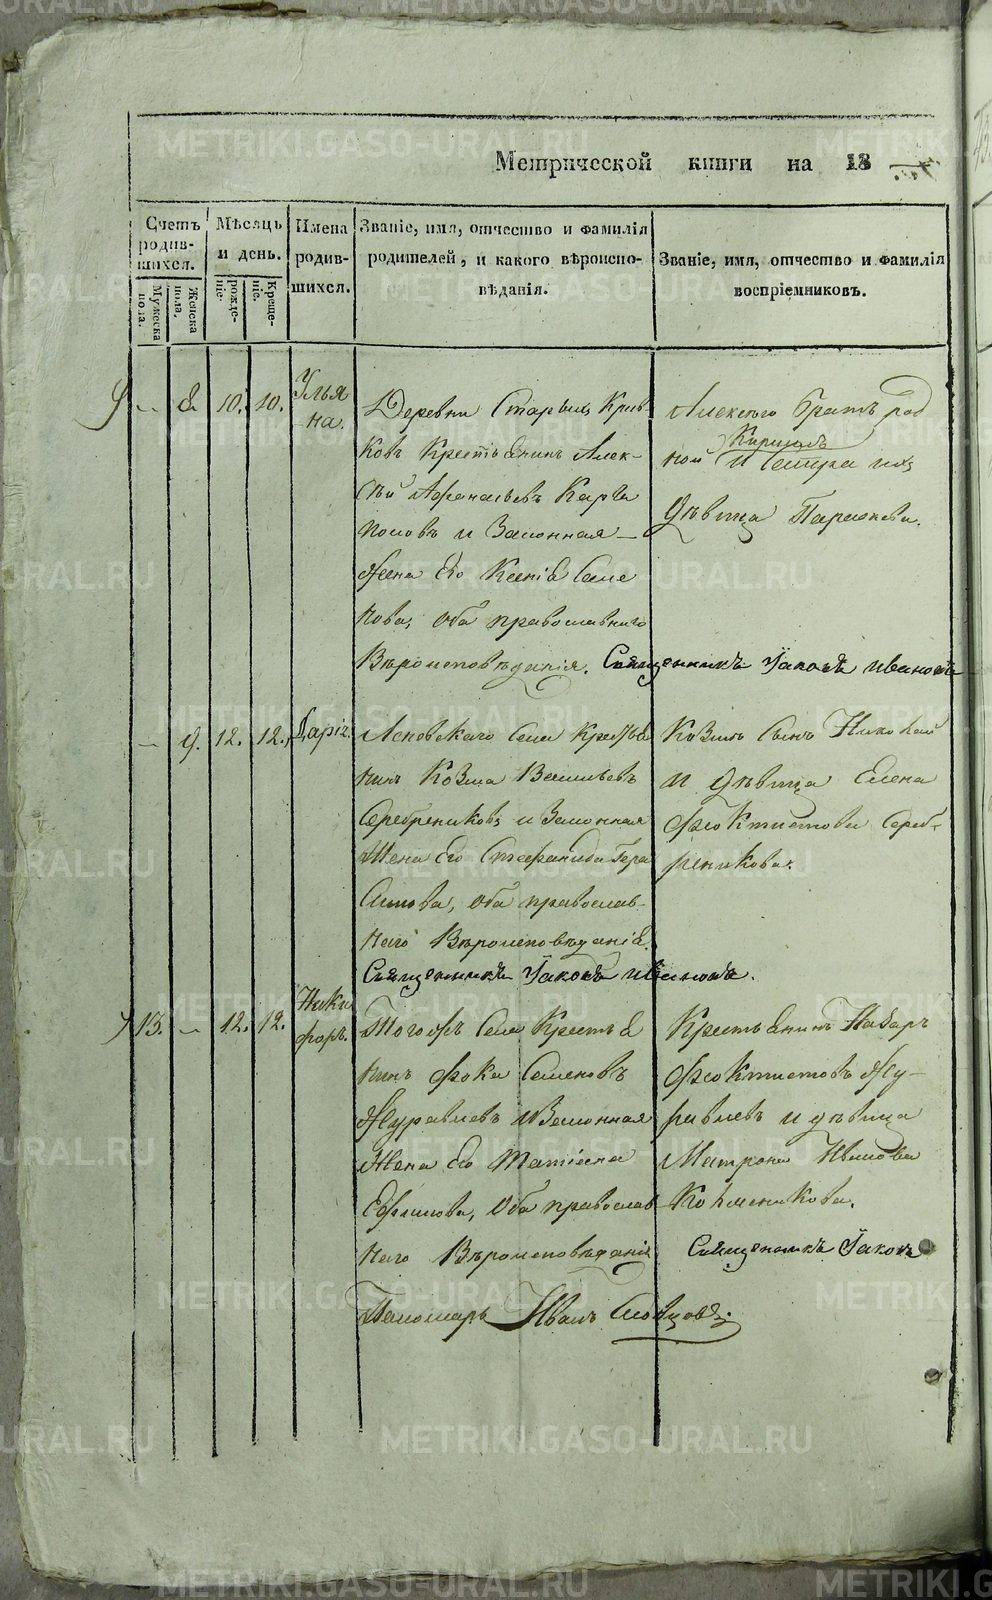 Метрической книги на 18
Счетъ родив- шихся.
Мужеска пола.
Женска пола.
Мѣсяцъ и день.
рожде- нiе.
Креще- нiе.
Имена родив- шихся.
Званiе, имя, отчество и фамилiя
родителей, и какого вѣроиспо-
вѣданiя.
Званiе, имя, отчество и фамилiя
воспрiемниковъ.
8 10. 10. Улья
на.
Деревни Старыхъ Крив-
ковъ Крестьянинъ Алек-
сѣй Афанасьевъ Карга
половъ и Законная
Жена Его Ксенiя Семе
нова, оба православнаго
Вѣроисповѣданiя. Священникъ Iаковъ Ивановъ
Алексѣя братъ род
Кирилъ
ной и Сестра ихъ
дѣвица Парасковья.
9. 12. 12. Дарiя.
Села Крестья
нинъ Козма Васильевъ
Серебрениковъ и Законная
Жена Его Стефанида Гера
симова, оба православ-
наго Вѣроисповѣданiя.
Священникъ Iаковъ Ивановъ.
Козминъ Сынъ Николай
и дѣвица Елена
Феоктистова Сереб-
реникова.
13. 12. 12. Ники
форъ.
Тогожъ Села Крестья
нинъ Фока Семеновъ
Журавлевъ и Законная
Жена Его Татiана
Ефимова, Оба православ
наго Вѣроисповѣданiя
Пономарь Иванъ Словцовъ.
Крестьянинъ Назаръ
Феоктистовъ Жу-
равлевъ и дѣвица
Матрона Иванова
Священникъ Iаковъ
METRIKI.GASO-URAL.RU